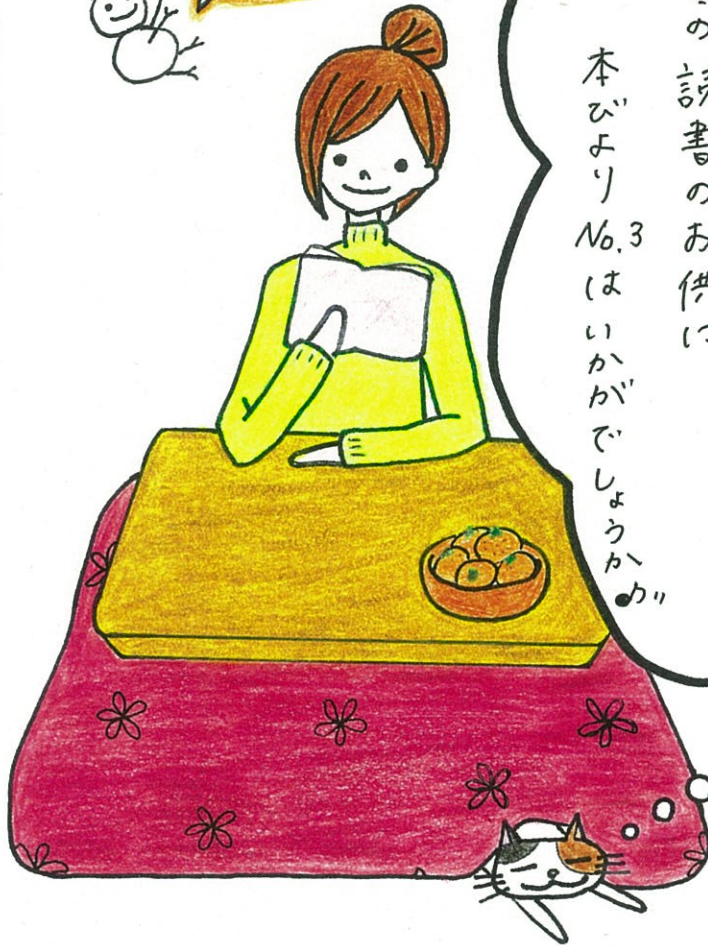 の読書のお供に
本びより No.3 はいかがでしょうか♪